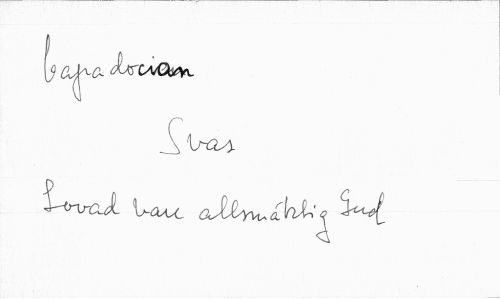 Capadocian
Svas
Lovad vare allsmäktig Gud